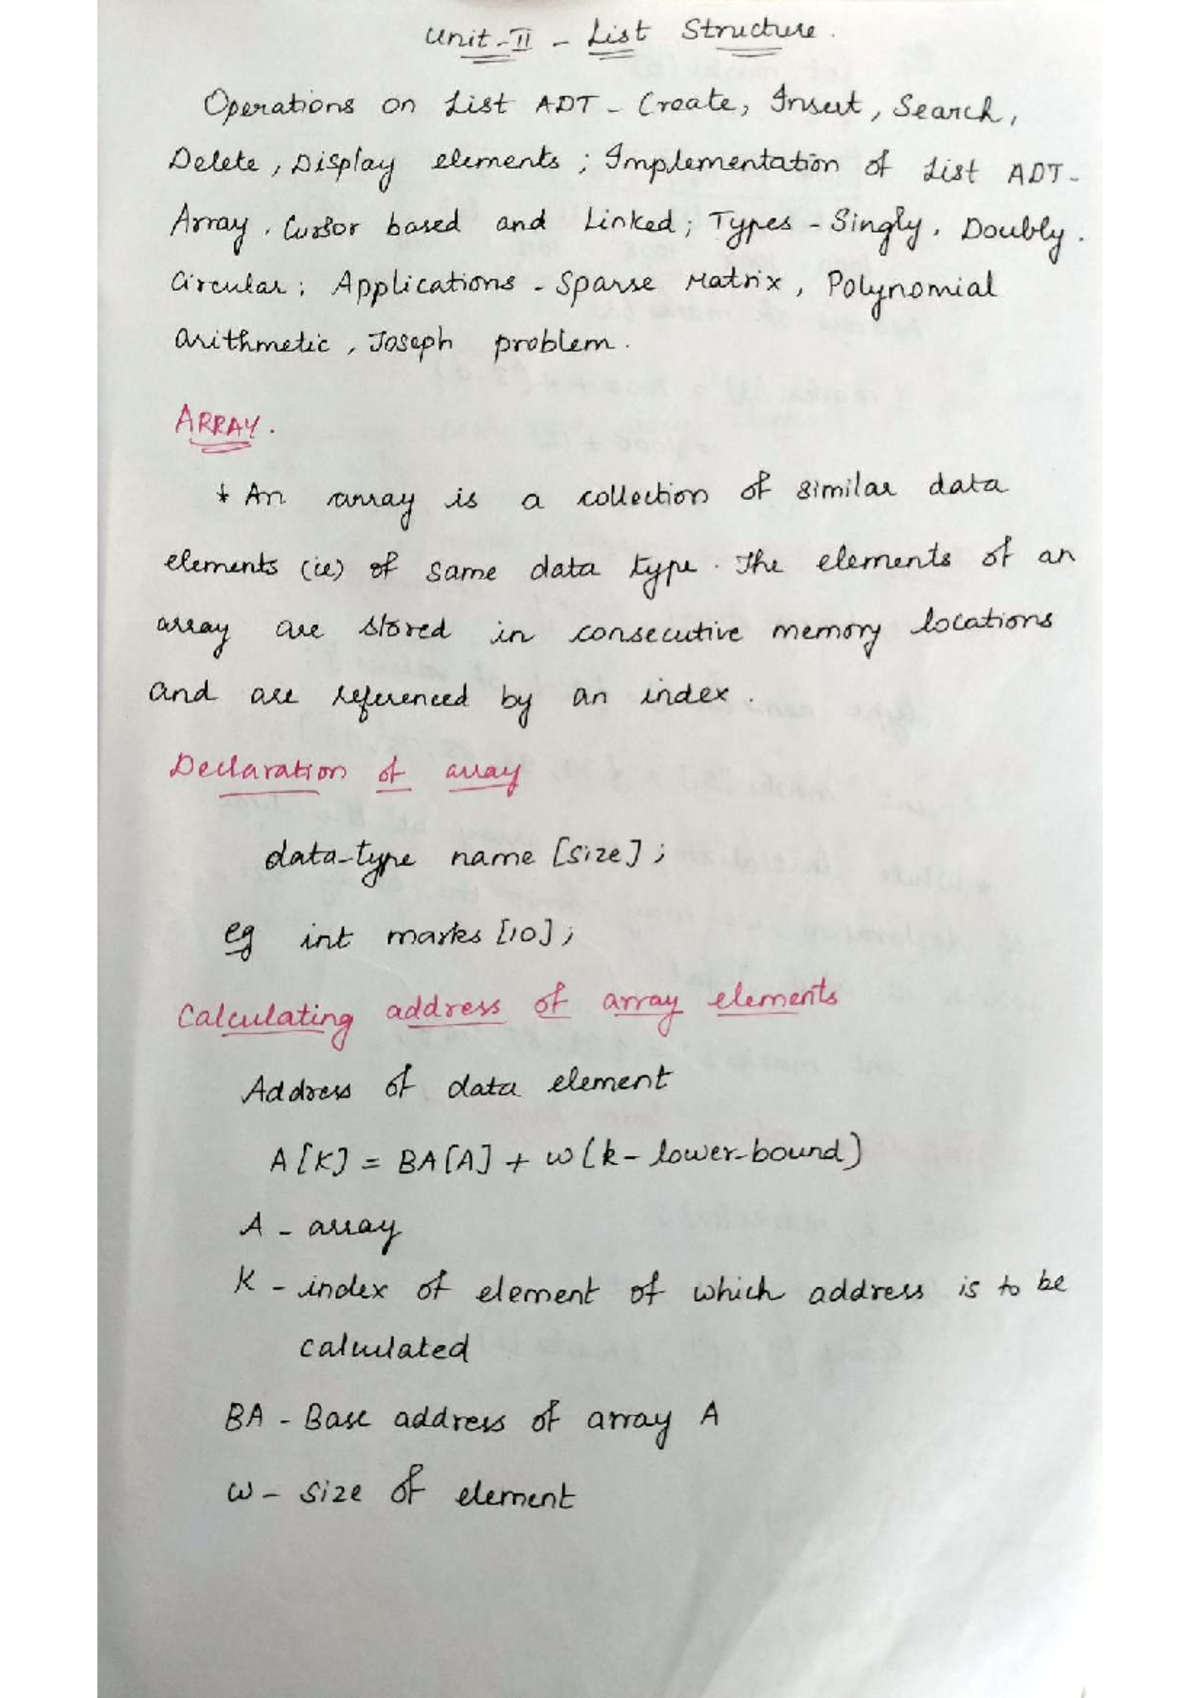 Unit-II - List Structure.
Operations on List ADT - Create, Insert, Search,
Delete, Display elements; Implementation of List ADT-
Array, Cursor based and Linked; Types - Singly, Doubly.
Circular; Applications - Sparse Matrix, Polynomial
arithmetic, Joseph problem.
ARRAY.
* An array is a collection of similar data
elements (ie) of same data type. The elements of an
array are stored in consecutive memory locations
and are referenced by an index.
Declaration of array
data-type name [size];
eg int marks [10];
Calculating address of array elements
Address of data element
A[K] = BA[A] + w(k- lower-bound)
A - array
K - index of element of which address is to be
calculated
BA - Base address of array A
w - size of element